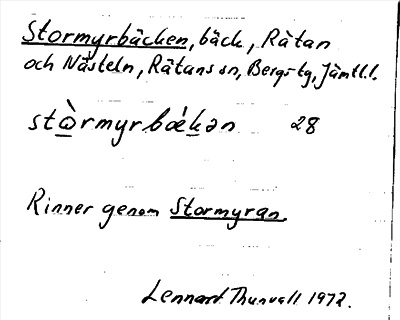 Stormyrbäcken, bäck, Rätan
och Nästeln, Rätans sn, Bergs tg, Jämtl.l.
stὼrmyrbæ̀kən 28
Rinner genom Stormyran.
Lennart Thunvall 1972.